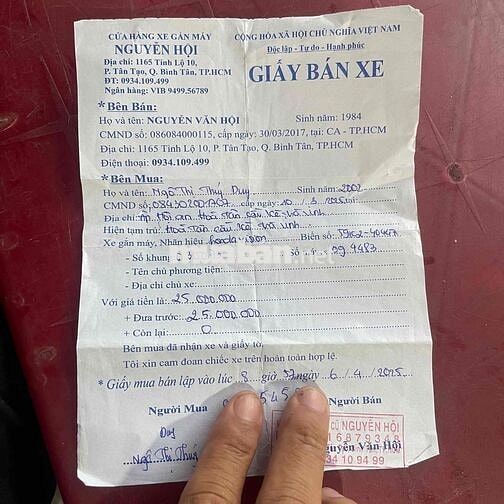 CỬA HÀNG XE GẮN MÁY
NGUYỄN HỘI
Địa chỉ: 1165 Tỉnh Lộ 10,
P. Tân Tạo, Q. Bình Tân, TP.HCM
ĐT: 0934.109.499
Ngân hàng: VIB 9499.56789
CỘNG HÒA XÃ HỘI CHỦ NGHĨA VIỆT NAM
Độc lập - Tự do - Hạnh phúc
GIẤY BÁN XE
* Bên Bán:
Họ và tên: NGUYỄN VĂN HỘI Sinh năm: 1984
CMND số: 086084000115, cấp ngày: 30/03/2017, tại: CA - TP.HCM
Địa chỉ: 1165 Tỉnh Lộ 10, P. Tân Tạo, Q. Bình Tân, TP.HCM
Điện thoại: 0934.109.499
* Bên Mua:
Họ và tên: Ngô Thị Thúy Duy Sinh năm: 2002
CMND số: cấp ngày: 10 / 3 / 2025 tại:
Địa chỉ:
Hiện tạm trú: Hoà Tân
Xe gắn máy, Nhãn hiệu: honda Biển số:
- Số khung
- Tên chủ phương tiện:
- Địa chỉ chủ xe:
Với giá tiền là: 25.000.000
+ Đưa trước: 25.000.000
+ Còn lại: 0
Bên mua đã nhận xe và giấy tờ,
Tôi xin cam đoan chiếc xe trên hoàn toàn hợp lệ.
* Giấy mua bán lập vào lúc 8 giờ 37 ngày 6 / 4 / 2025
Người Mua
Người Bán
Duy
Ngô Thị Thúy
CŨ NGUYỄN HỘI
Nguyễn Văn Hội